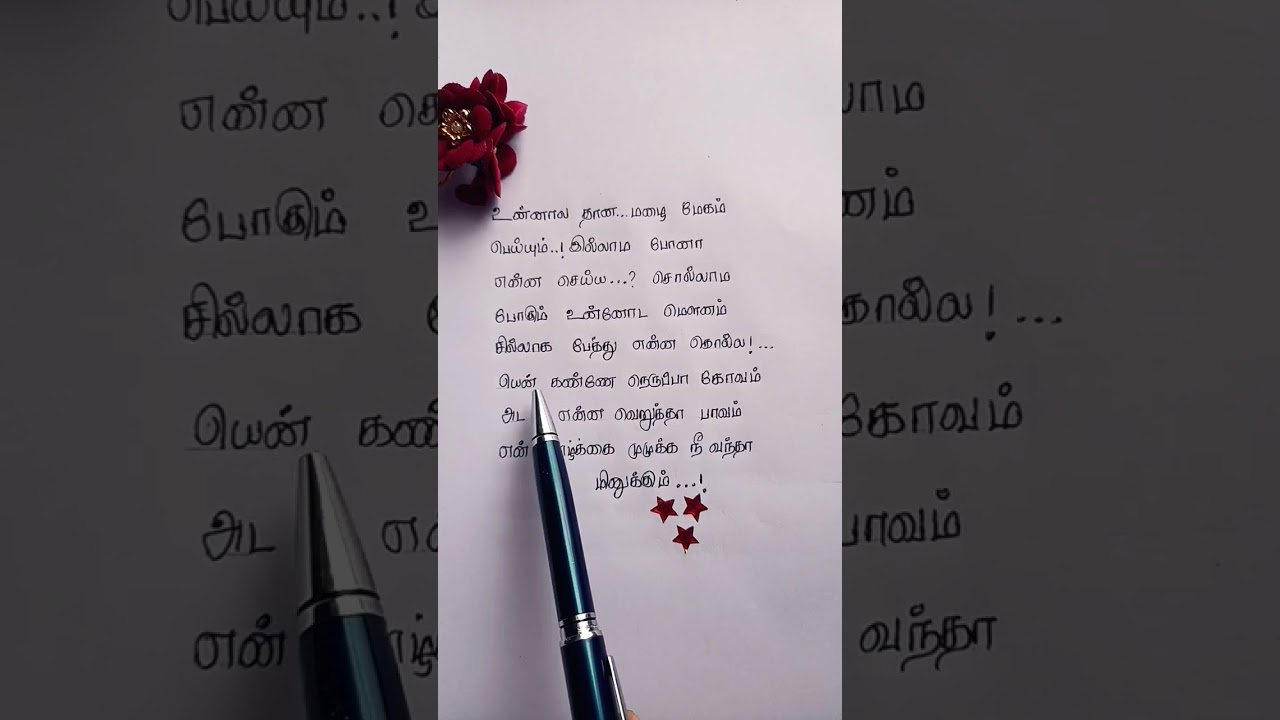 உன்னால தான...மழை மேகம்
பெய்யும்..! இல்லாம போனா
என்ன செய்ய...? சொல்லாம
போகும் உன்னோட மௌனம்
சில்லாக பேத்து என்ன கொல்ல!...
யென் கண்ணே நெருப்பா கோவம்
அட என்ன வெறுத்தா பாவம்
என் முழுக்க நீ வந்தா
மினுக்கும்...!